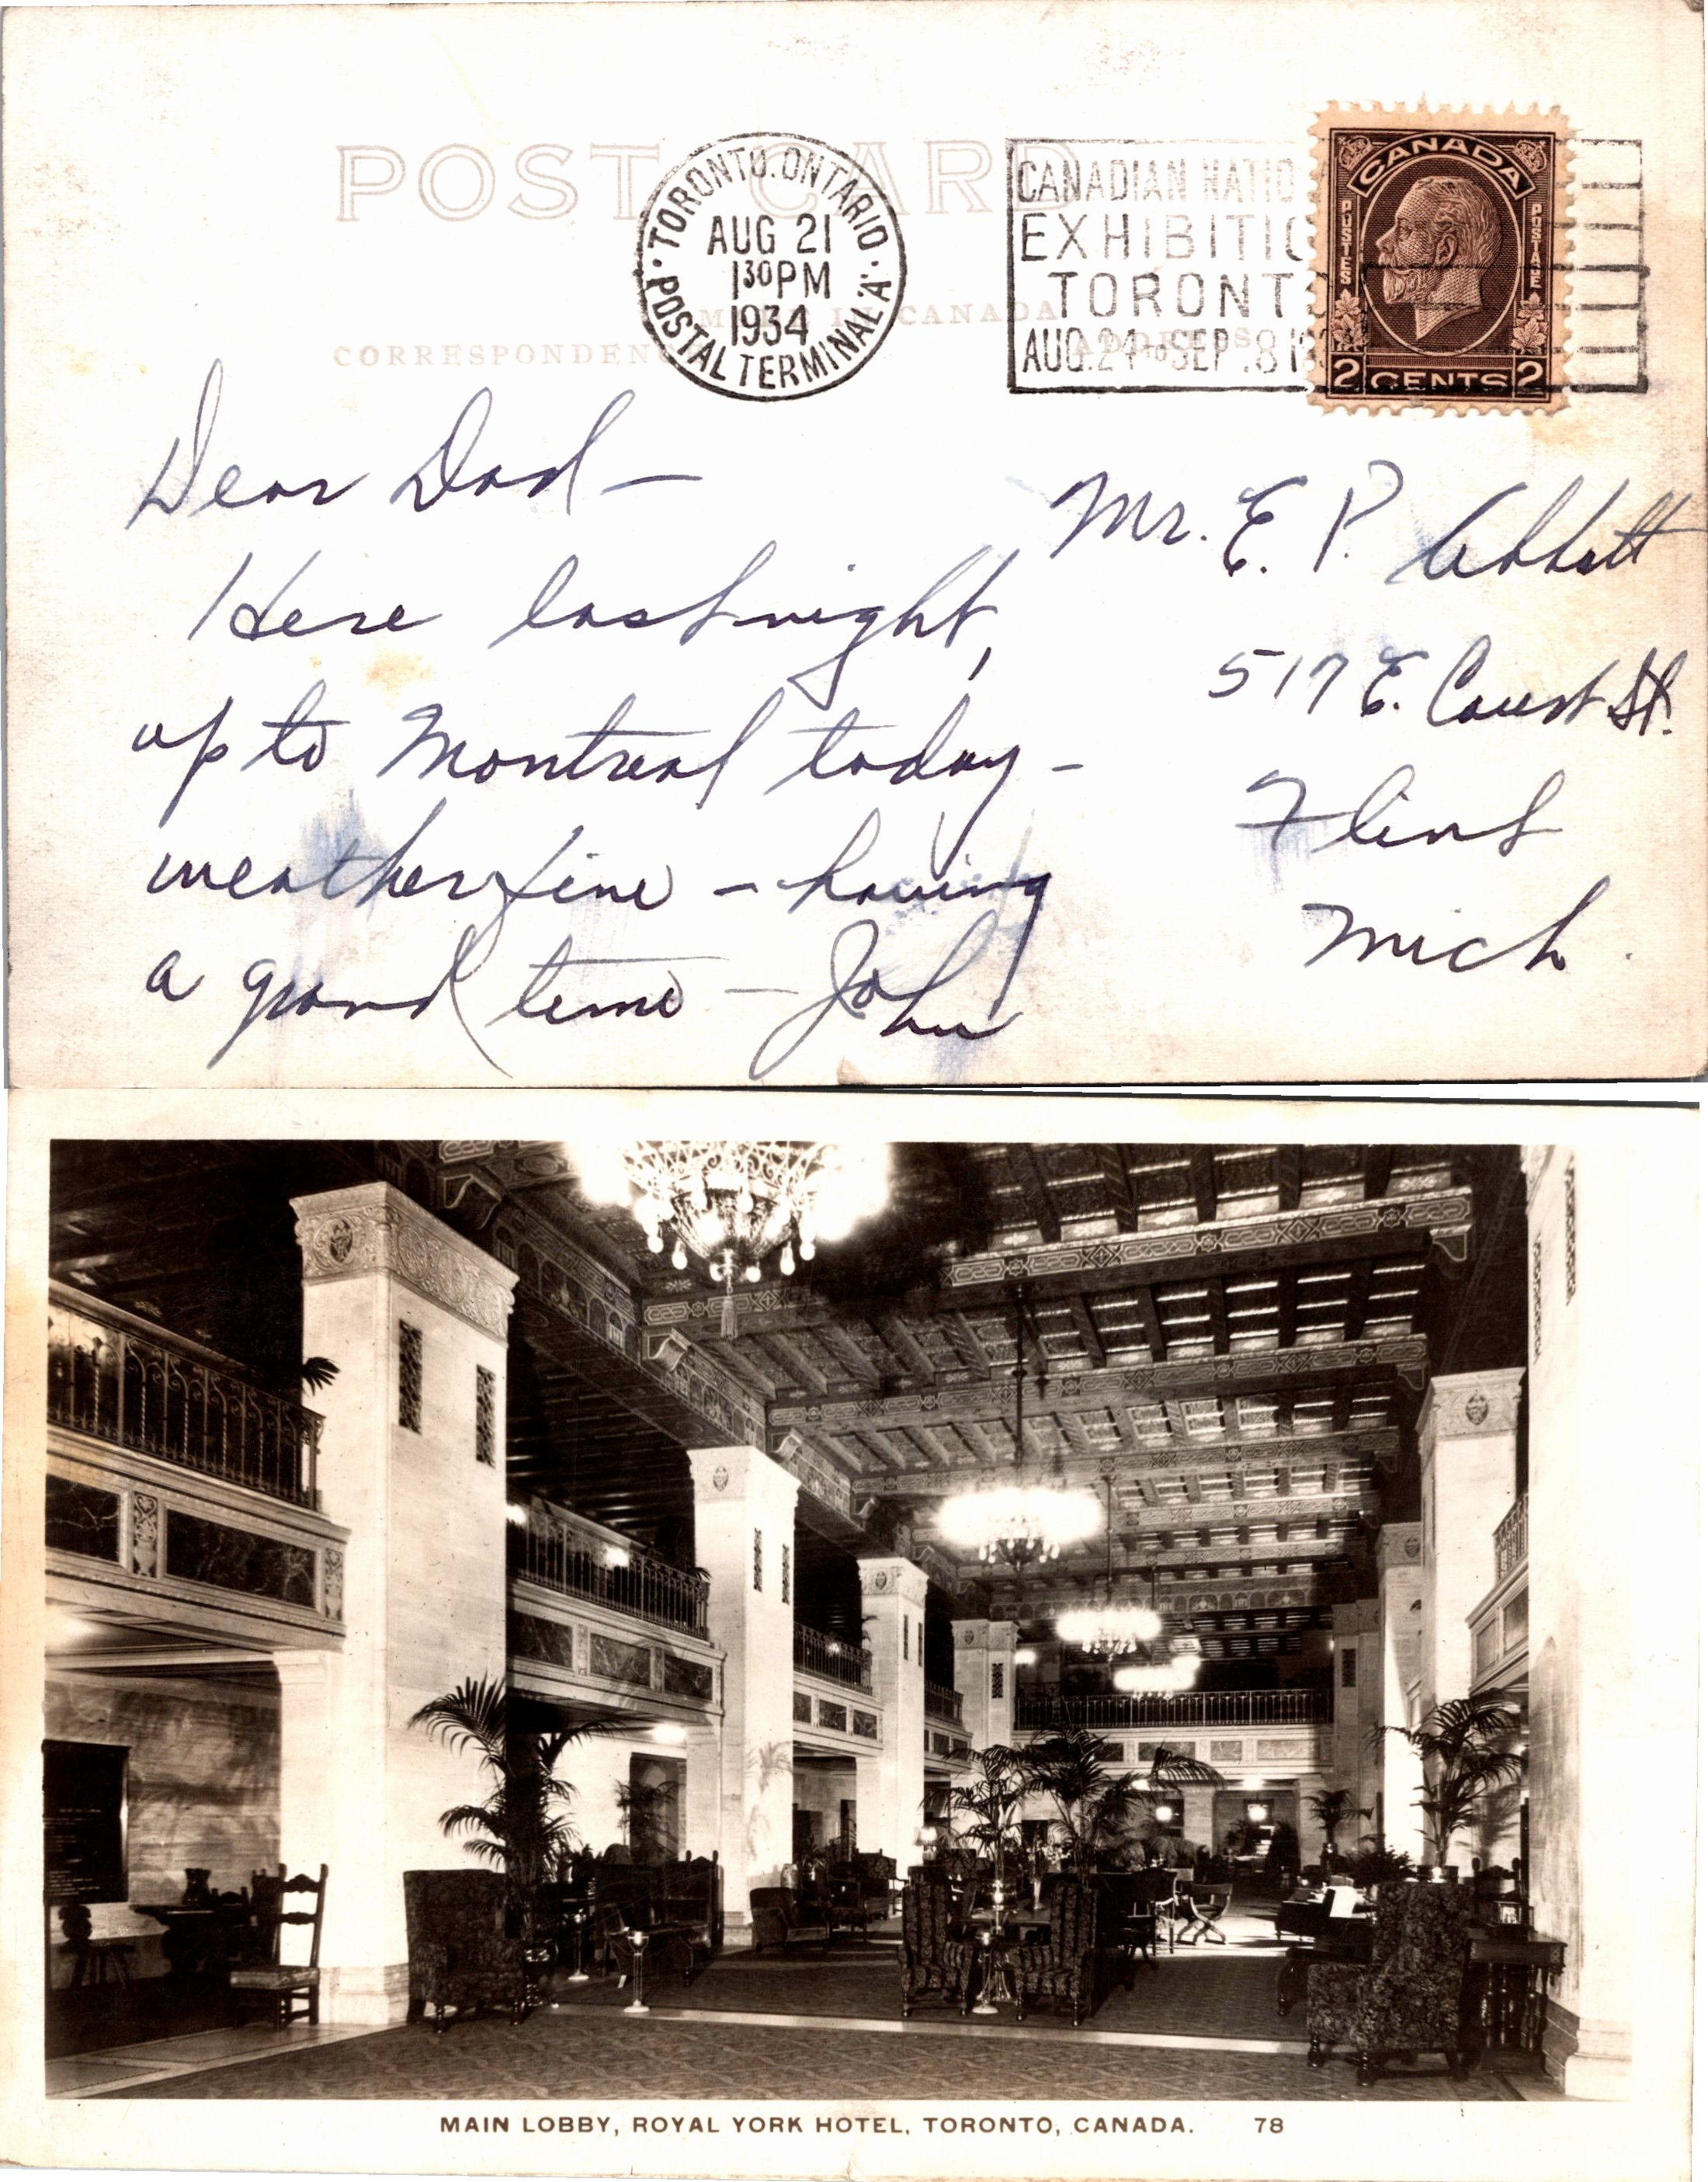 POST CARD
TORONTO. ONTARIO
AUG 21
1 30 PM
1934
POSTAL TERMINAL 'A'
CANADIAN NATIO
EXHIBITIO
TORONT
AUG. 24 TO SEP. 8
CANADA
POSTES
POSTAGE
2 CENTS 2
MADE IN CANADA
CORRESPONDENC
ADDRESS
Dear Dad —
Here last night,
up to Montreal today —
weather fine — having
a grand time — John
Mr. E. P. Abbott
517 E. Court St.
Flint
Mich.
MAIN LOBBY, ROYAL YORK HOTEL, TORONTO, CANADA. 78